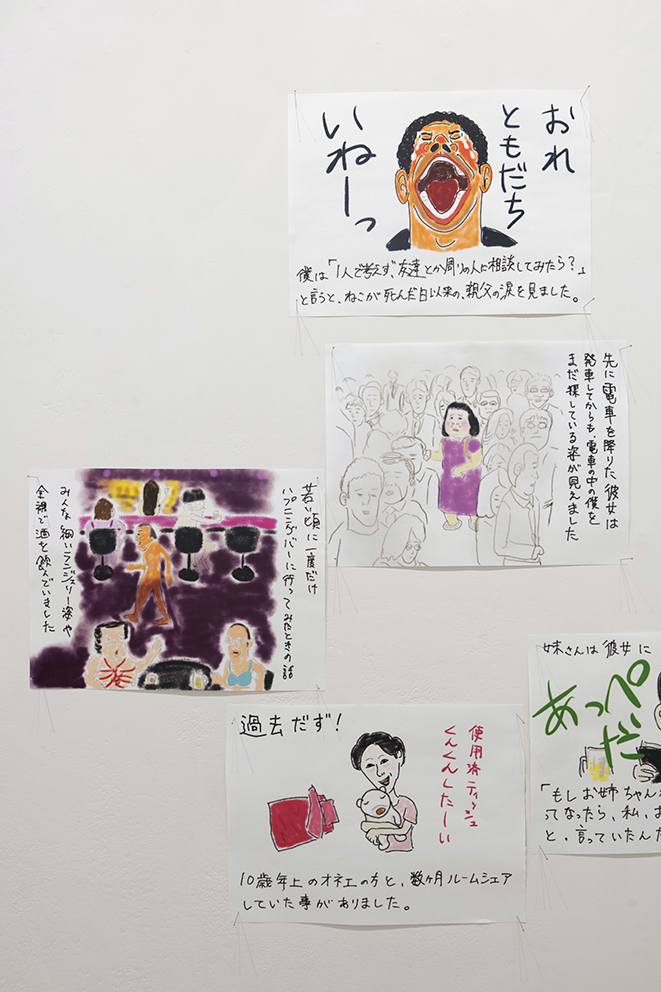 おれ
ともだち
いねーっ
僕は「1人で考えず、友達とか周りの人に相談してみたら？」
と言うと、ねこが死んだ日以来の、親父の涙を見ました。
先に電車を降りた彼女は
発車してからも、電車の中の僕を
まだ探している姿が見えました
若い頃に一度だけ
ハプニングバーに行ってみたときの話
みんな細いランジェリー姿や
全裸で酒を飲んでいました
過去だず！
使用済ティッシュ
くんくんしたーい
10歳年上のオネエの方と、数ヶ月ルームシェア
していた事がありました。
妹さんは彼女に
あっぺ
だ
「もしお姉ちゃん
ってなったら、私、お
と、言っていたんだ